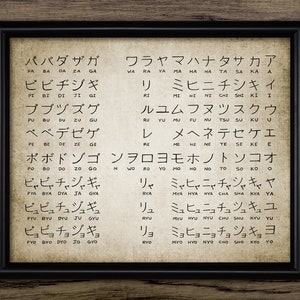 パ バ ダ ザ ガ ワ ラ ヤ マ ハ ナ タ サ カ ア
PA BA DA ZA GA WA RA YA MA HA NA TA SA KA A
ピ ビ ヂ ジ ギ リ ミ ヒ ニ チ シ キ イ
PI BI DI JI GI RI MI HI NI CHI SHI KI I
プ ブ ヅ ズ グ ル ユ ム フ ヌ ツ ス ク ウ
PU BU ZU GU RU YU MU FU NU TSU SU KU U
ペ ベ デ ゼ ゲ レ メ ヘ ネ テ セ ケ エ
PE BE DE ZE GE RE ME HE NE TE SE KE E
ポ ボ ド ゾ ゴ ン ヲ ロ ヨ モ ホ ノ ト ソ コ オ
PO BO DO ZO GO N WO RO YO MO HO NO TO SO KO O
ピャ ビャ ヂャ ジャ ギャ リャ ミャ ヒャ ニャ チャ シャ キャ ヤ
PYA BYA DYA JA GYA RYA MYA HYA NYA CHA SHA KYA YA
ピュ ビュ ヂュ ジュ ギュ リュ ミュ ヒュ ニュ チュ シュ キュ ユ
PYU BYU DYU JU GYU RYU MYU HYU NYU CHU SHU KYU YU
ピョ ビョ ヂョ ジョ ギョ リョ ミョ ヒョ ニョ チョ ショ キョ ヨ
PYO BYO DYO JO GYO RYO MYO HYO NYO CHO SHO KYO YO